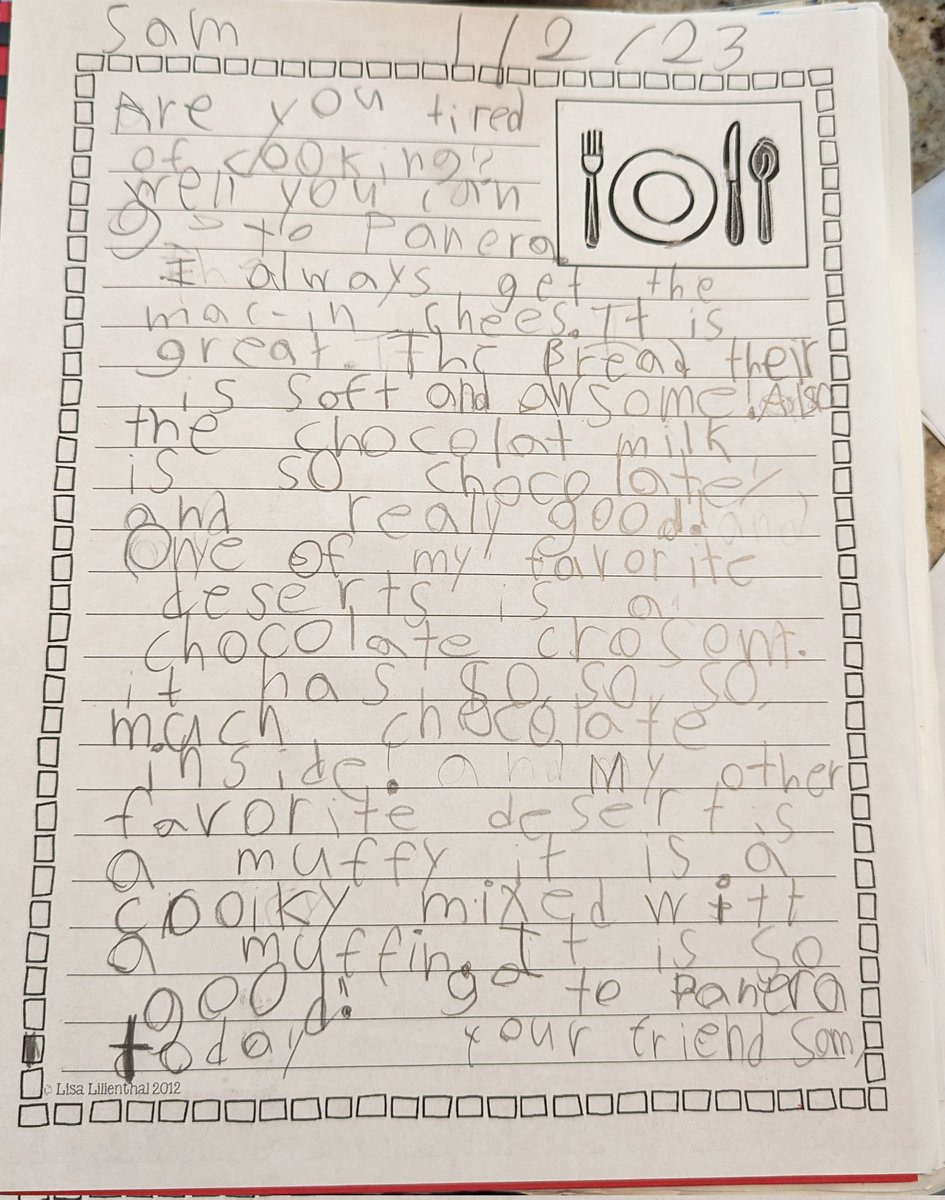 Sam 1/2/23
Are you tired
of cooking?
Well you can
go to Panera.
I always get the
mac-in chees. It is
great. The Bread their
is soft and awsome! Also
the chocolat milk
is so chocolatey
and realy good!
One of my favorite
deserts is a
chocolate crosont.
it has so, so, so,
much chocolate
inside! and My other
favorite desert is
a muffy it is a
cooky mixed witt
a muffin. It is so
good! got to Panera
today your friend Sam,
© Lisa Lillenthal 2012